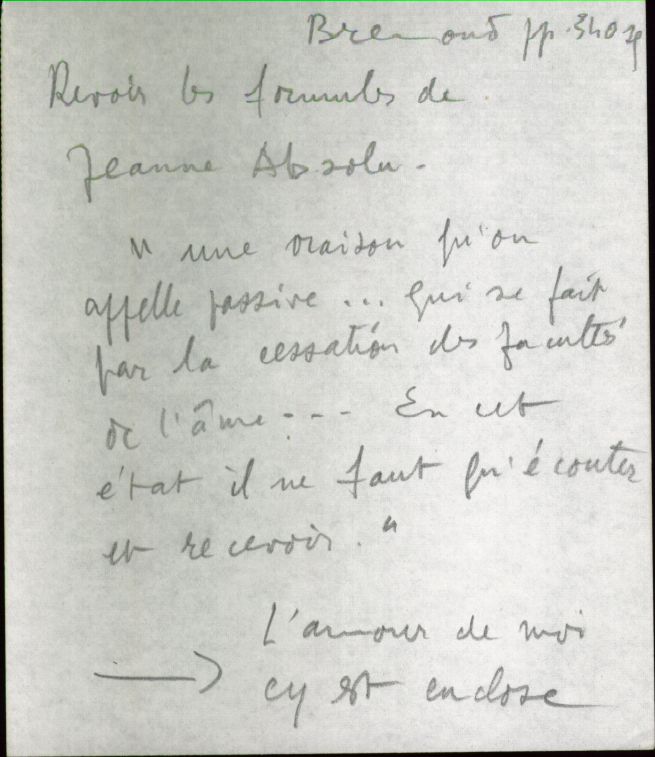 Bremond pp. 340 sq
Revoir les formules de
Jeanne Absolu.
" une oraison qu'on
appelle passive ... qui se fait
par la cessation des facultés
de l'âme --- En cet
état il ne faut qu'écouter
et recevoir. "
L'amour de moi
→ cy est enclose